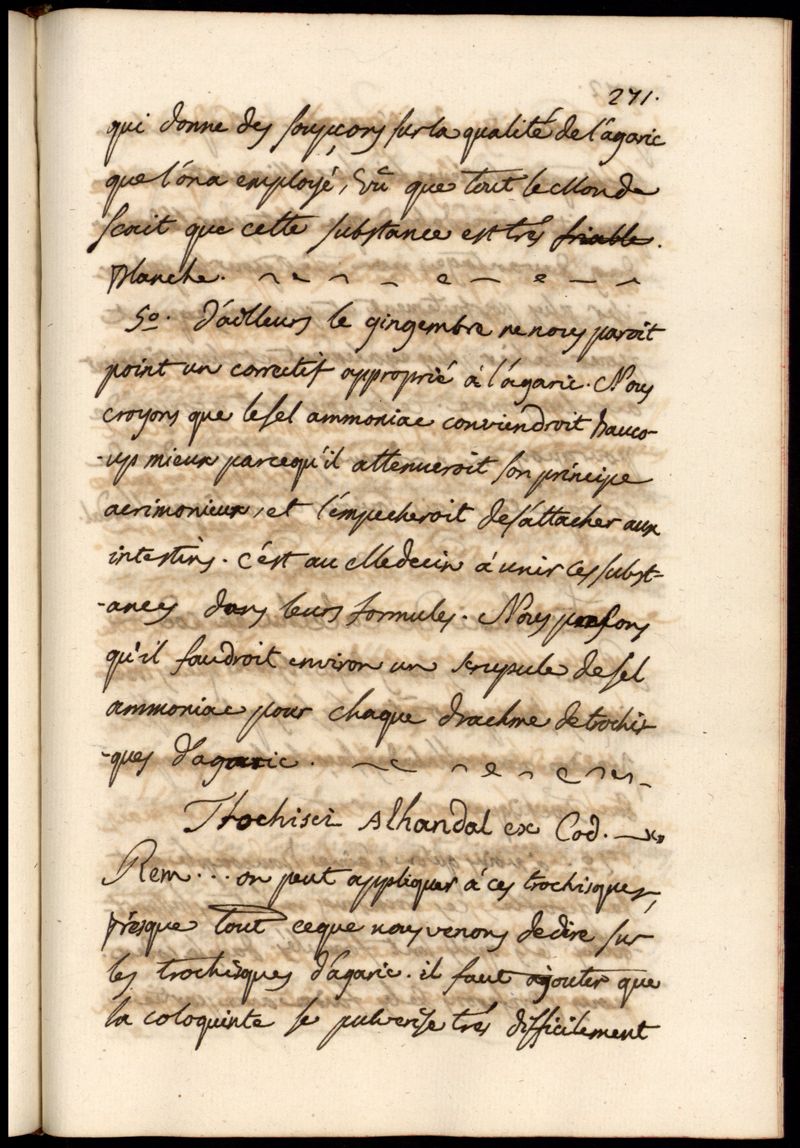 271.
qui donne des soupçons sur la qualité de l'agaric
que l'on a employé, vû que tout le Monde
scait que cette substance est trés friable.
blanche.
5º. d'ailleurs le gingembre ne nous paroit
point un correctif approprié à l'agaric. Nous
croyons que le sel ammoniac conviendroit bauco-
-up mieux parcequ'il attenueroit son principe
acrimonieux, et l'émpecheroit de s'attacher aux
intestins. c'est au Medecin à unir ces subst-
-ances dans leurs formules. Nous pensons
qu'il faudroit environ un scrupule de sel
ammoniac pour chaque drachme de trochis-
-ques d'agaric.
Trochisci Alhandal ex Cod.
Rem... on peut appliquer à ces trochisques,
présque tout ceque nous venons de dire sur
les trochisques d'agaric. il faut ajouter que
la coloquinte se pulverise trés difficilement